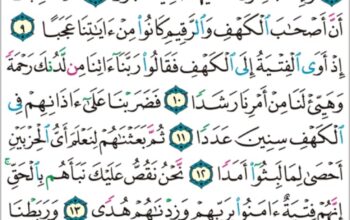 أَنَّ أَصۡحَٰبَ ٱلۡكَهۡفِ وَٱلرَّقِيمِ كَانُواْ مِنۡ ءَايَٰتِنَا عَجَبًا ٩
إِذۡ أَوَى ٱلۡفِتۡيَةُ إِلَى ٱلۡكَهۡفِ فَقَالُواْ رَبَّنَآ ءَاتِنَا مِن لَّدُنكَ رَحۡمَةٗ
وَهَيِّئۡ لَنَا مِنۡ أَمۡرِنَا رَشَدٗا ١٠ فَضَرَبۡنَا عَلَىٰٓ ءَاذَانِهِمۡ فِي
ٱلۡكَهۡفِ سِنِينَ عَدَدٗا ١١ ثُمَّ بَعَثۡنَٰهُمۡ لِنَعۡلَمَ أَيُّ ٱلۡحِزۡبَيۡنِ
أَحۡصَىٰ لِمَا لَبِثُوٓاْ أَمَدٗا ١٢ نَّحۡنُ نَقُصُّ عَلَيۡكَ نَبَأَهُم بِٱلۡحَقِّۚ
إِنَّهُمۡ فِتۡيَةٌ ءَامَنُواْ بِرَبِّهِمۡ وَزِدۡنَٰهُمۡ هُدٗى ١٣ وَرَبَطۡنَا